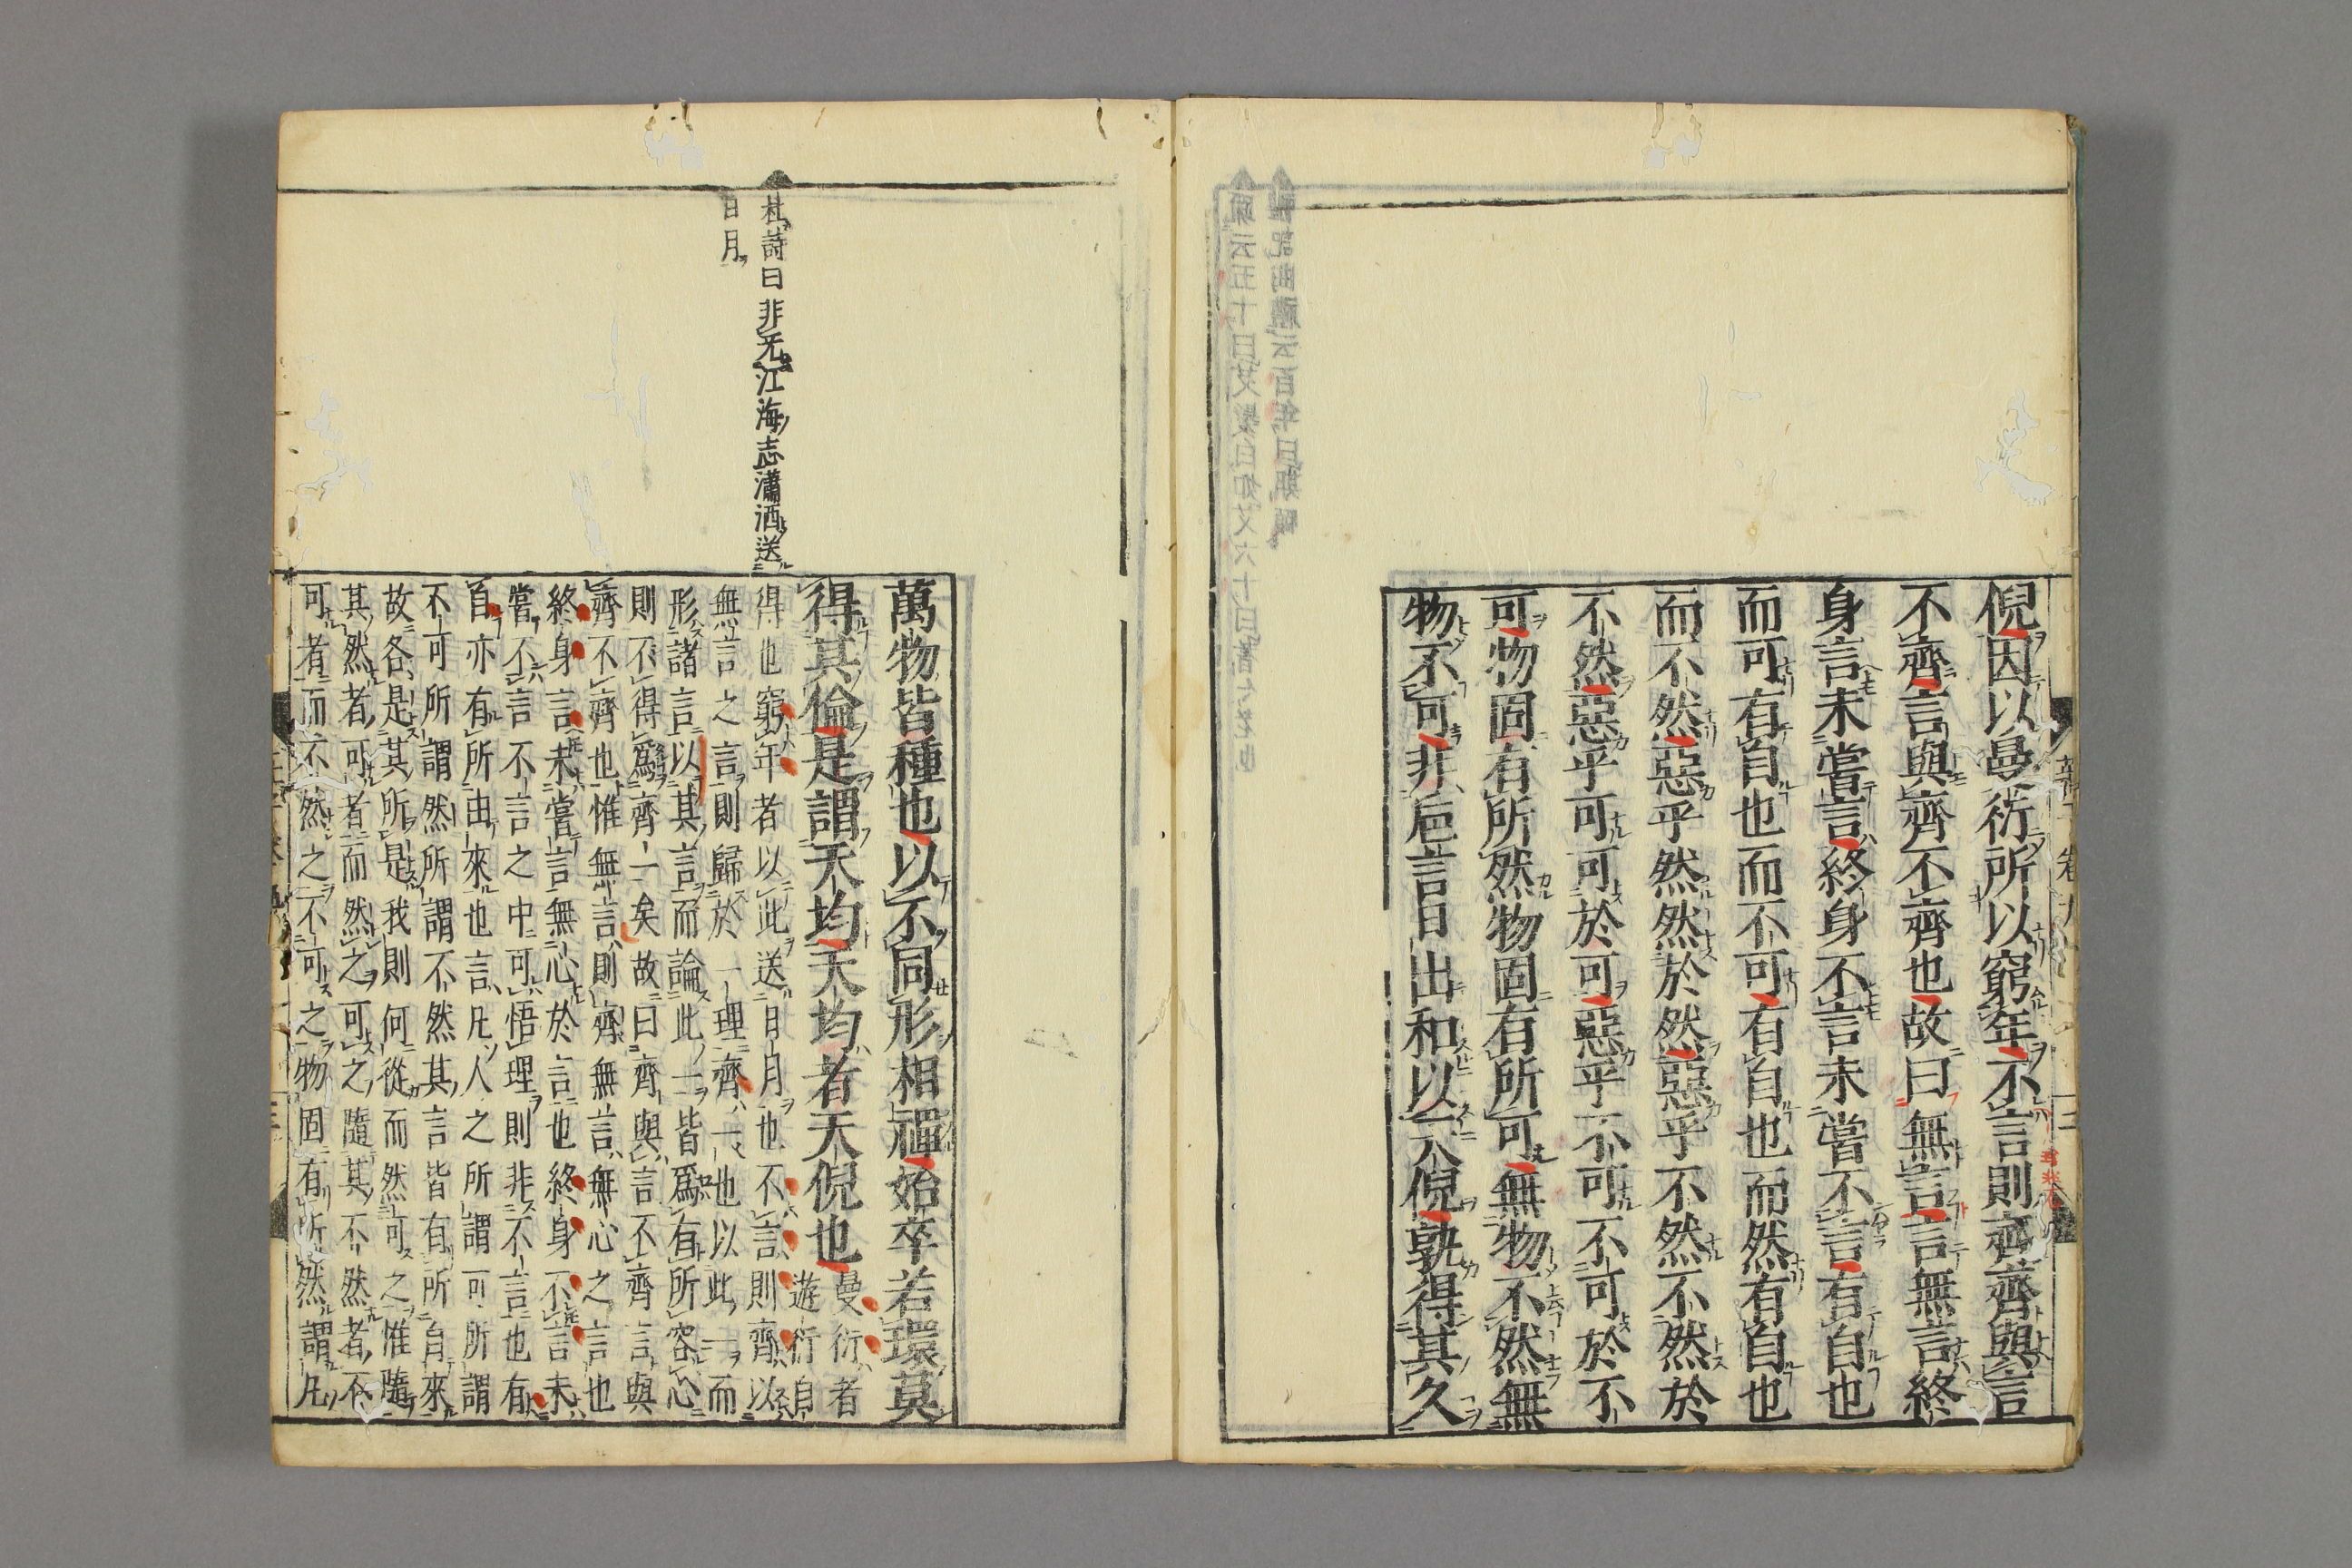 倪因以曼衍所以窮年不言則齊齊與言
不齊言與齊不齊也故曰無言言無言終
身言未嘗言終身不言未嘗不言有自也
而可有自也而不可有自也而然有自也
而不然惡乎然然於然惡乎不然不然於
不然惡乎可可於可惡乎不可不可於不
可物固有所然物固有所可無物不然無
物不可非巵言日出和以天倪孰得其久
萬物皆種也以不同形相禪始卒若環莫
得其倫是謂天均天均者天倪也
曼衍者
遊衍自
得也窮年者以此送日月也不言則齊以
無言之言則歸於一理齊一也以此一而
形諸言以其言而論此一皆爲有所容心
則不得爲齊一矣故曰齊與言不齊言與
齊不齊也惟無言則齊無言無心之言也
終身言未嘗言無心於言也終身不言未
嘗不言不言之中可悟理則非不言也有
自亦有所由來也言凡人之所謂可所謂
不可所謂然所謂不然其言皆有所自來
故各是其所是我則何從而然可之惟隨
其然者可者而然之可之隨其不然者不
可者而不然之不可之物固有所然謂凡
杜詩曰非无江海志瀟洒送
日月